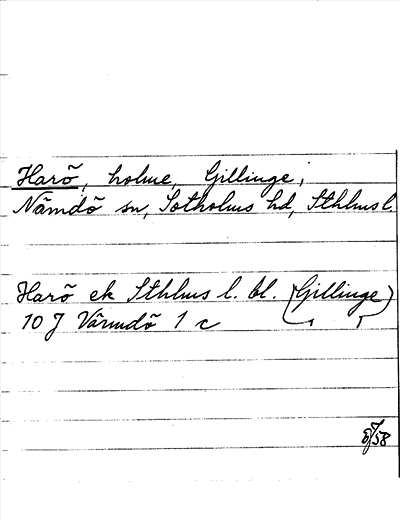 Harö, holme, Gillinge,
Nämdö sn, Sotholms hd, Sthlms l.
Harö ek Sthlms l. bl. (Gillinge)
10 J Värmdö 1 c
/58